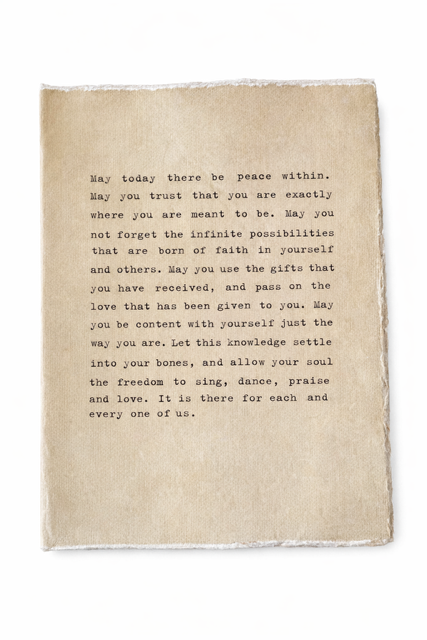 May today there be peace within.
May you trust that you are exactly
where you are meant to be. May you
not forget the infinite possibilities
that are born of faith in yourself
and others. May you use the gifts that
you have received, and pass on the
love that has been given to you. May
you be content with yourself just the
way you are. Let this knowledge settle
into your bones, and allow your soul
the freedom to sing, dance, praise
and love. It is there for each and
every one of us.